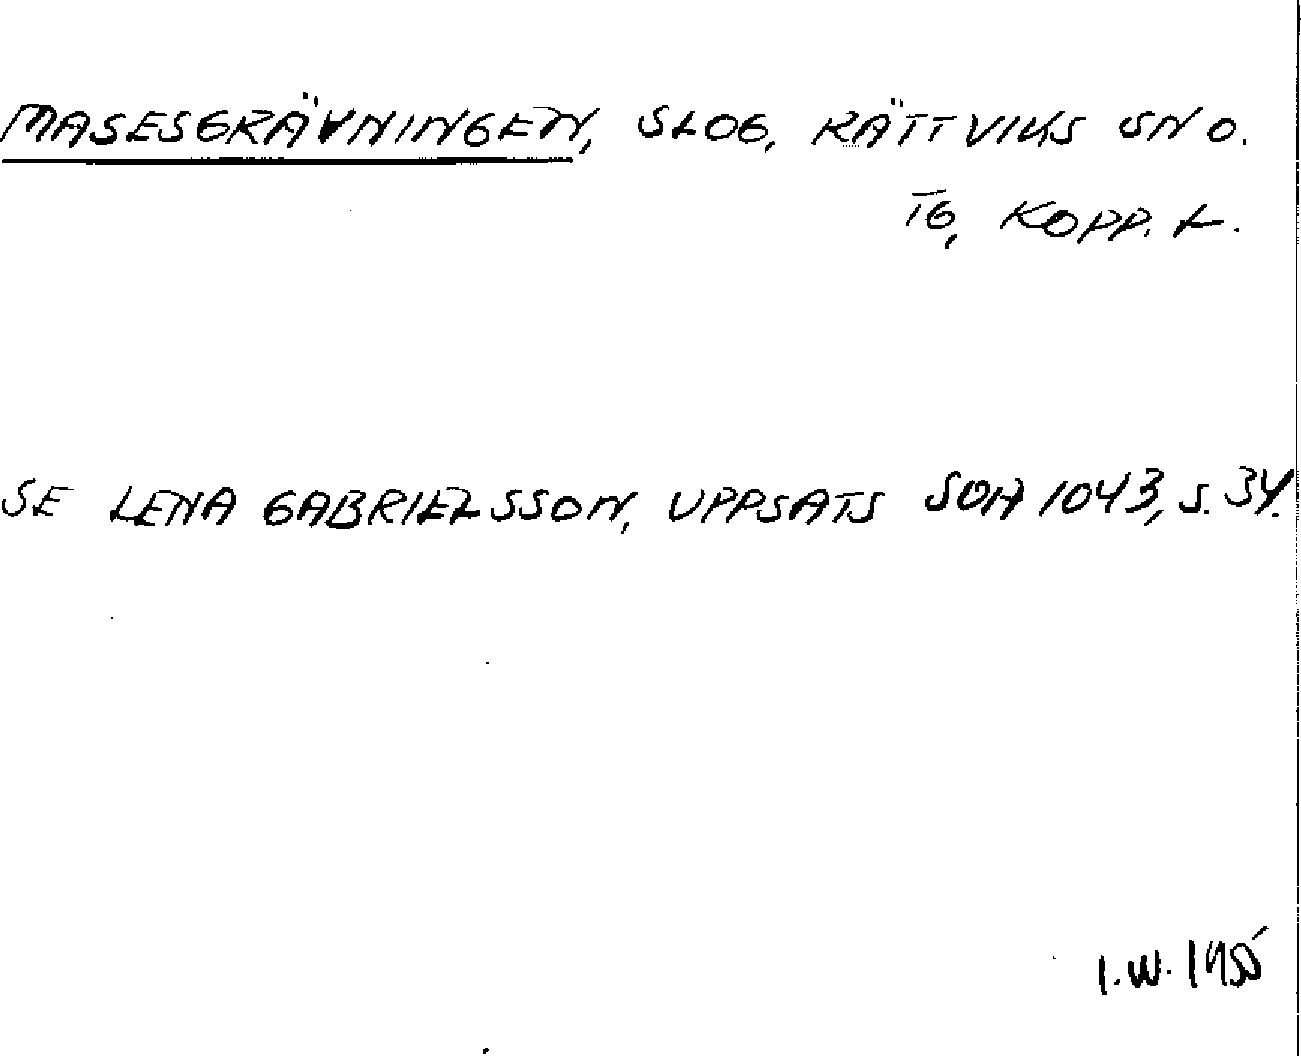 MASESGRÄVNINGEN, SLOG, RÄTTVIKS SN O.
TG, KOPP. L.
SE LENA GABRIELSSON, UPPSATS SOA 1043, S. 34.
I.W.